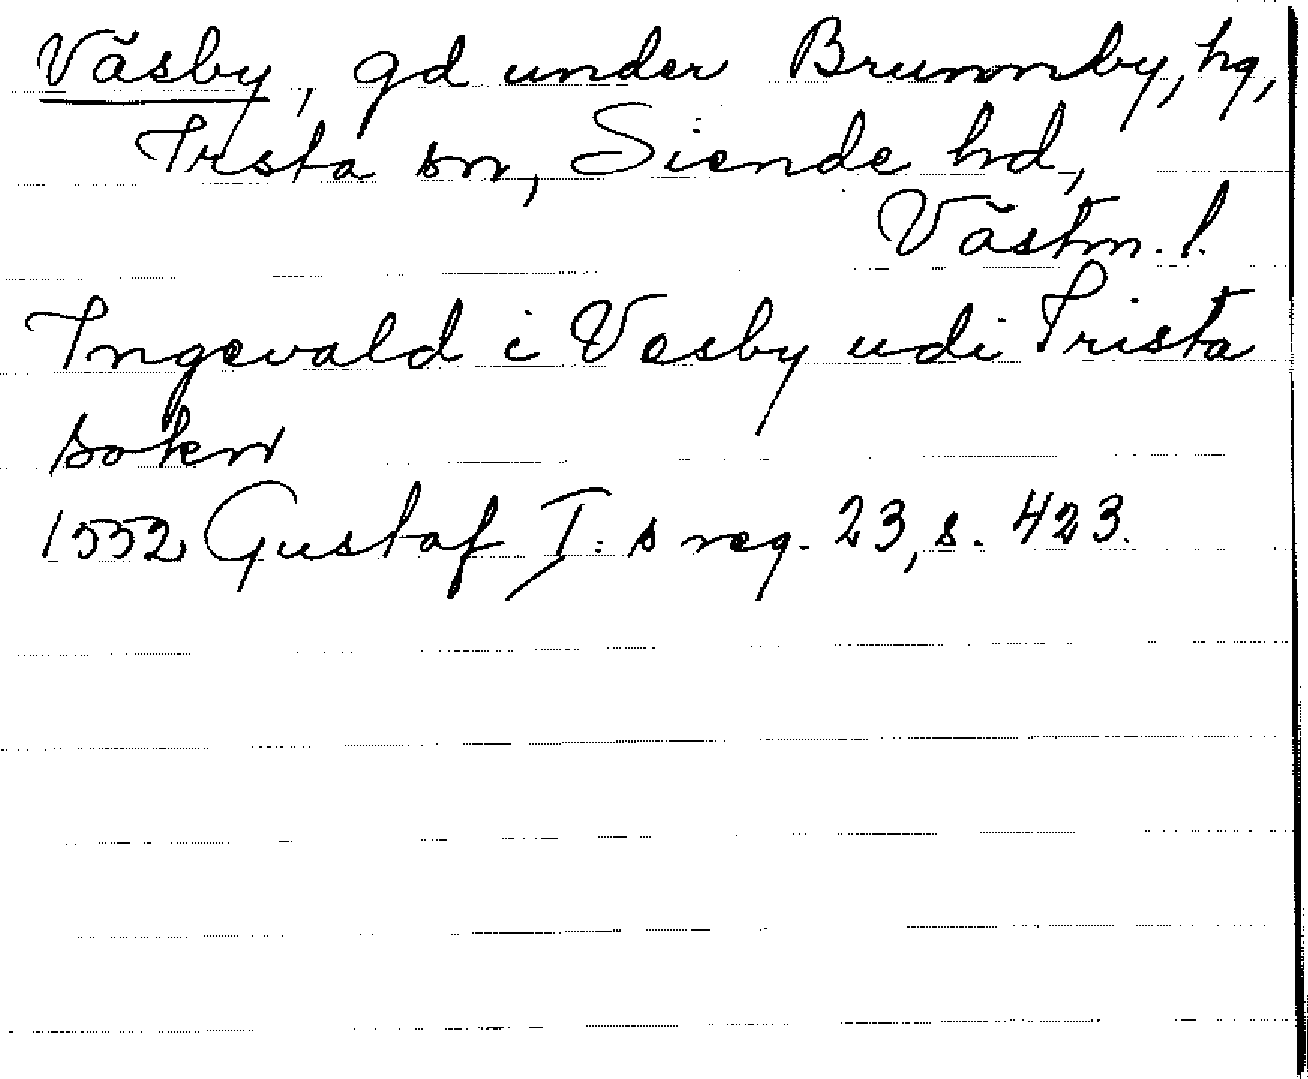 Väsby, gd under Brunnby, hg,
Irsta sn, Siende hd,
Västm. l.
Ingevald i Vesby udi Irista
sokn
1552 Gustaf I:s reg. 23, s. 423.